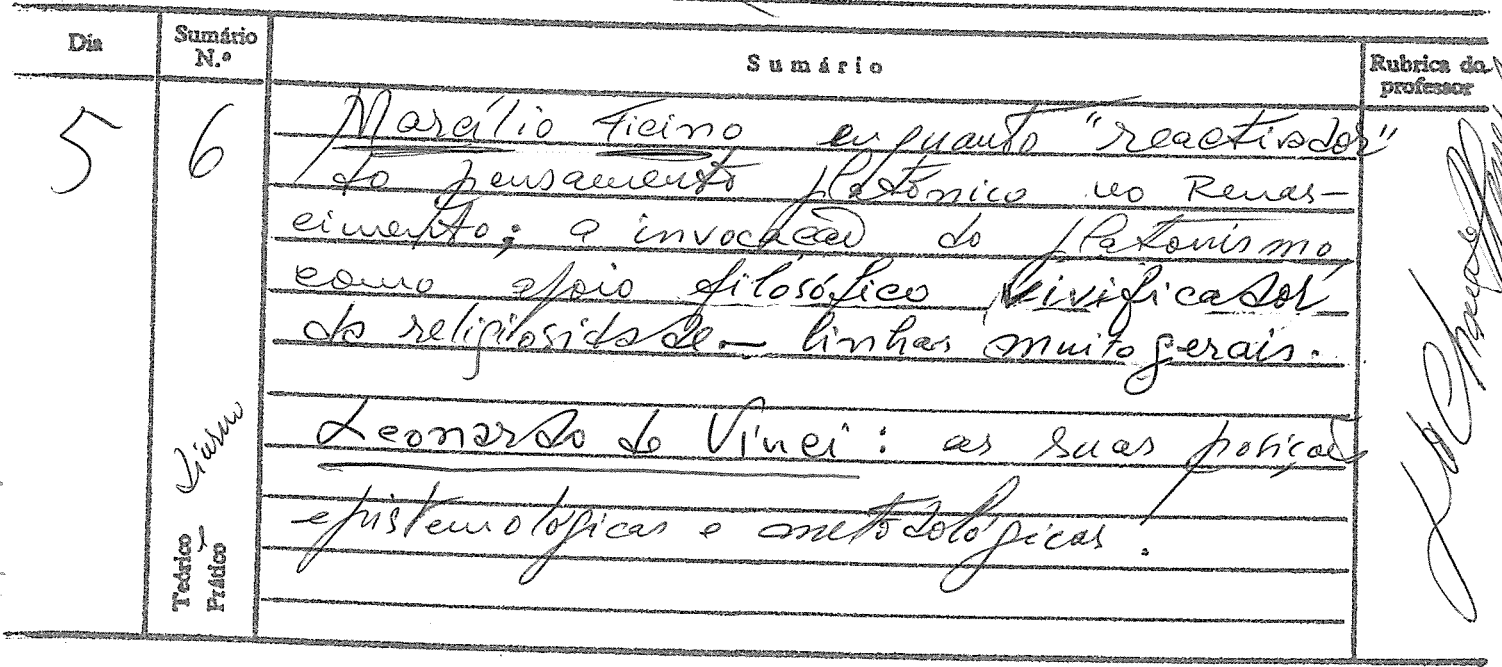 Dia
Sumário N.º
Sumário
Rubrica do professor
5
6
Marcílio Ficino enquanto "reactivador"
do pensamento platónico no Renas-
cimento; a invocação do platonismo
como apoio filosófico vivificador
da religiosidade — linhas muito gerais.
Leonardo da Vinci: as suas posições
epistemológicas e metodológicas.
Teórico
Prático
Diurno